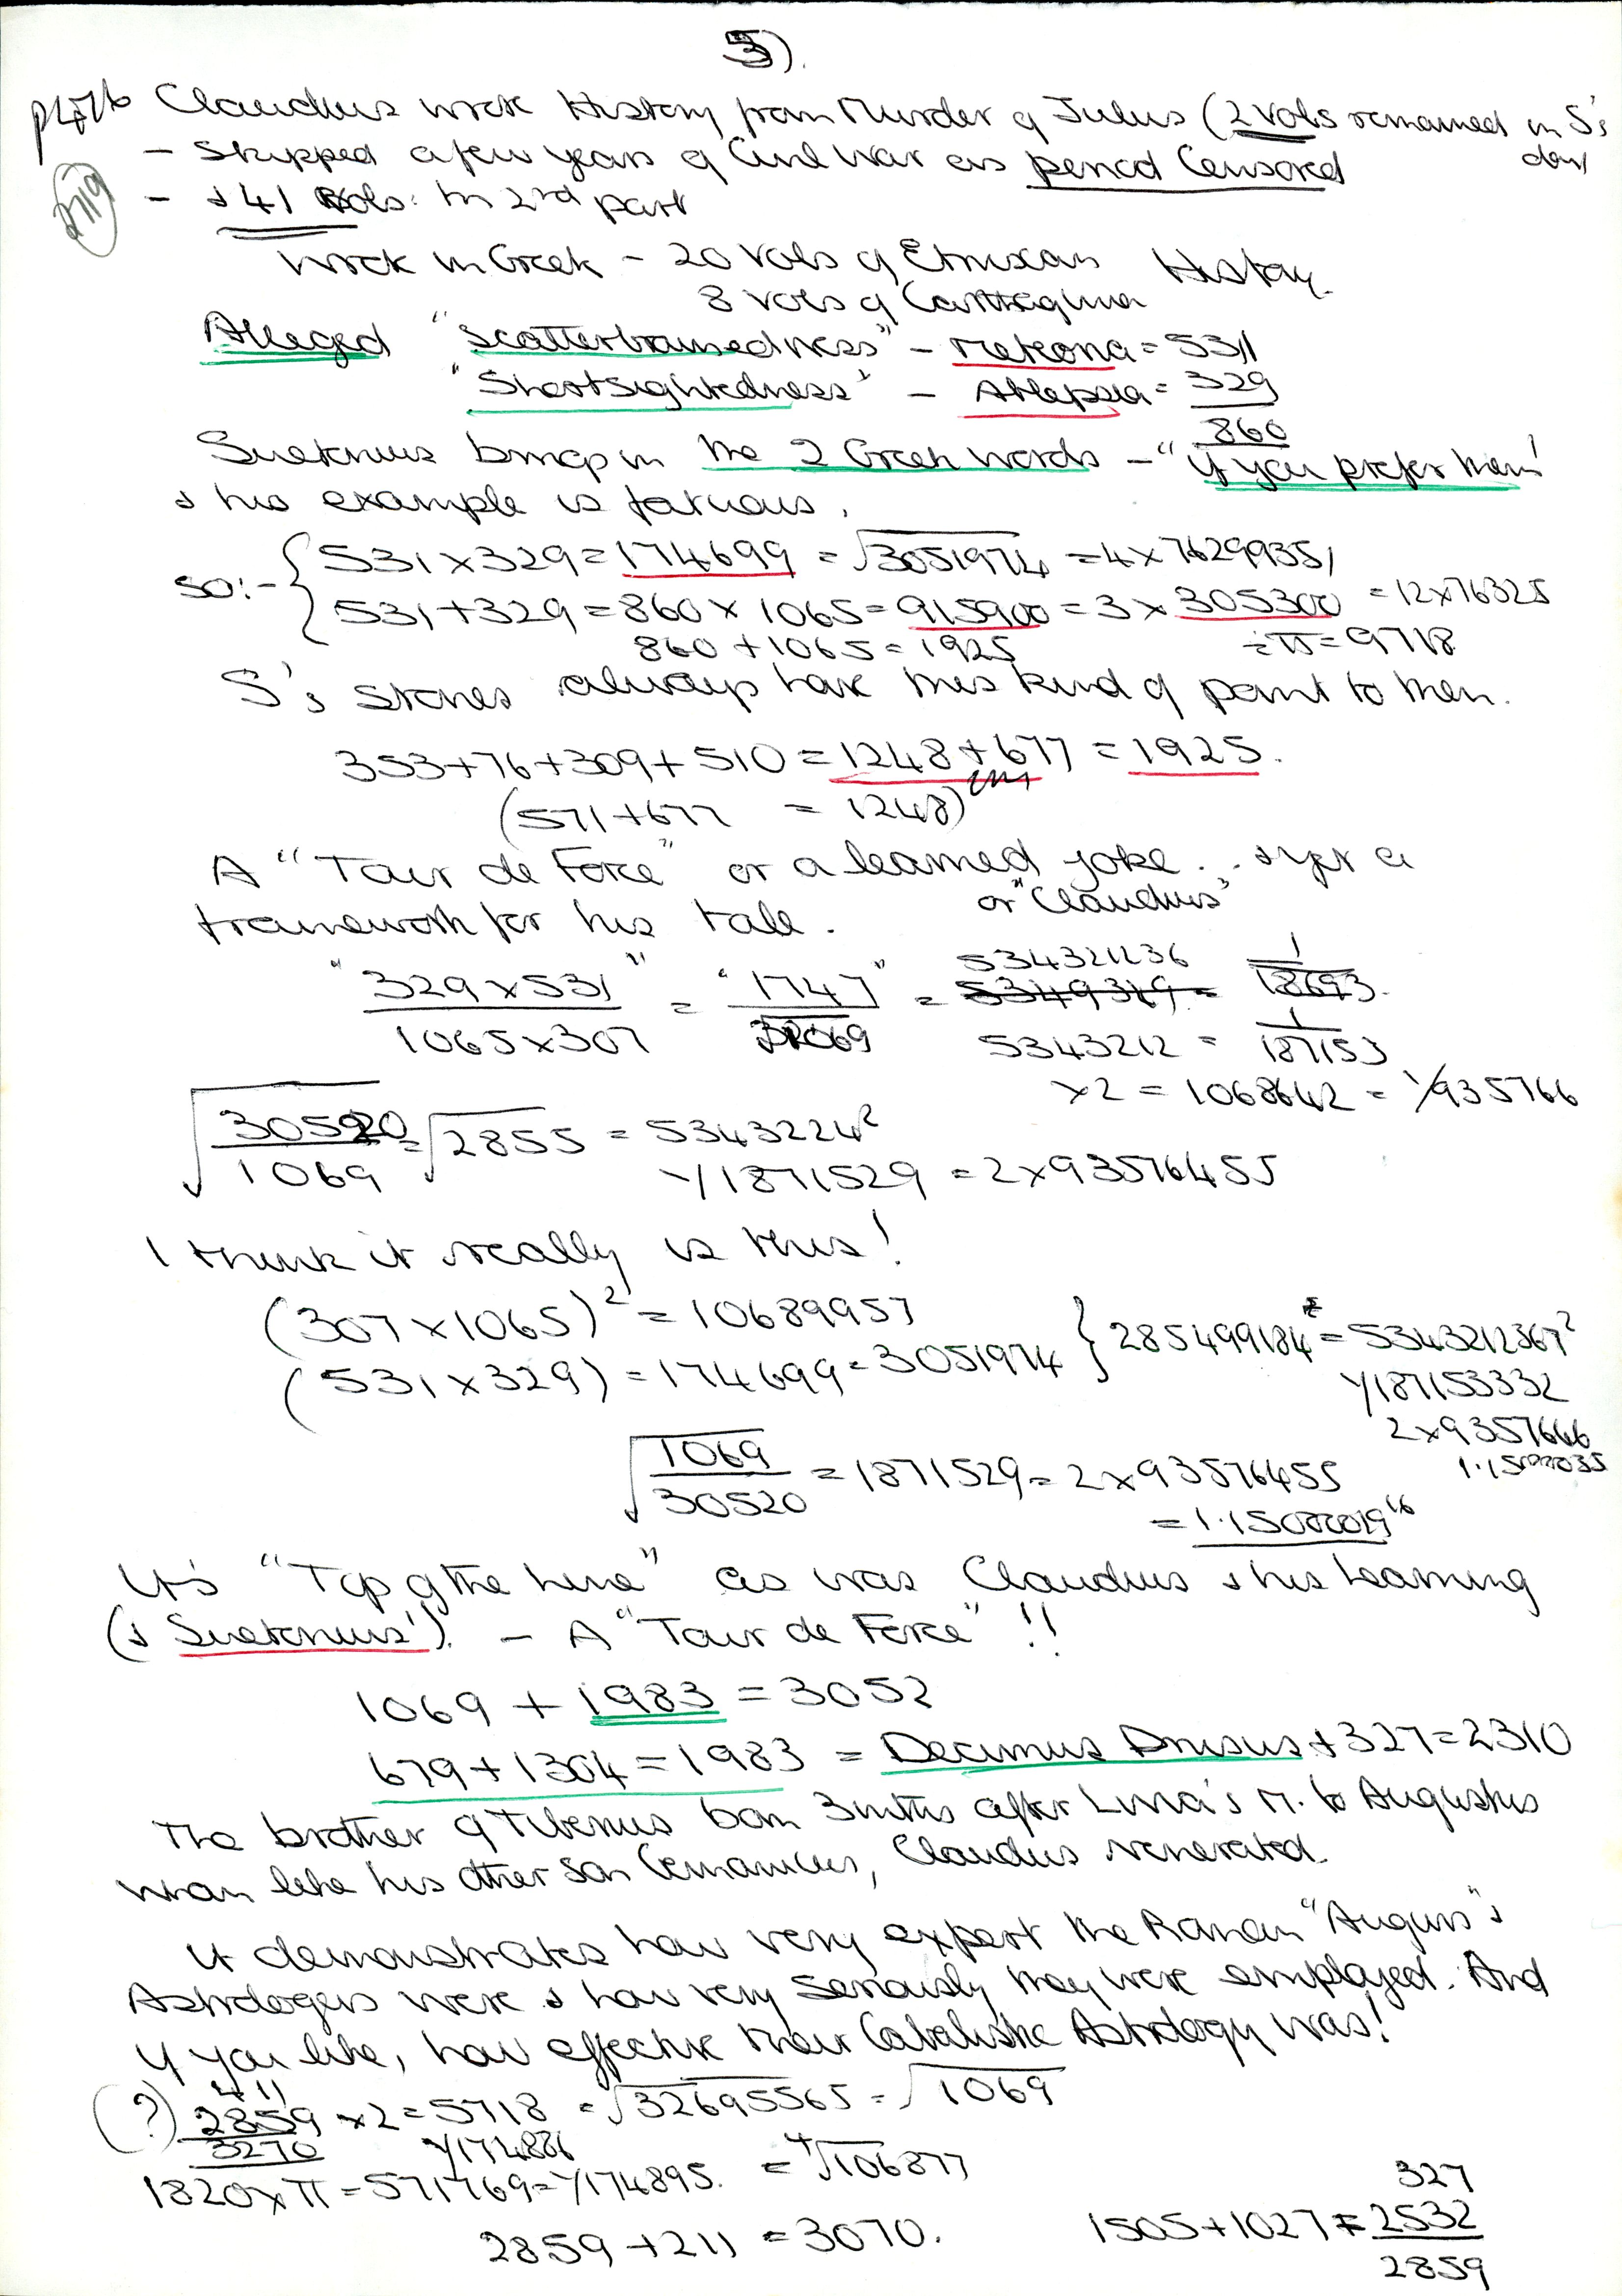 5).
Claudius wrote History from Murder of Julius (2 Vols remained in S's day)
- Skipped a few years of Civil War as period Censored
- & 41 Vols: in 2nd part
Wrote in Greek - 20 Vols of Etruscan History.
8 Vols of Carthaginian
Alleged "Scatterbrainedness" - Meteoria = 531
"Shortsightedness" - Ablepsia = 329
860
Suetonius brings in the 2 Greek words - "if you prefer them"
& his example is famous.
SO:- { 531 x 329 = 174699 = √3051974 = 4 x 76299351
531 + 329 = 860 x 1065 = 915900 = 3 x 305300 = 12 x 76325
860 + 1065 = 1925 ÷ π = 9718
S's stories always have this kind of point to them.
353 + 76 + 309 + 510 = 1248 + 677 = 1925.
(571 + 677 = 1248)
A "Tour de Force" or a learned joke.. & yet a
or "Claudius"
framework for his tale.
"329 x 531" / 1065 x 307 = "1747" / = 534321236
5343212 = 1/187153
x 2 = 1068642 = 1/935766
√30520/1069 = √2855 = 5343224²
1/1871529 = 2 x 93576455
I think it really is this!
(307 x 1065)² = 10689957
(531 x 329) = 174699 = 3051974 } 285499184 = 5343212367²
1/187153332
2 x 9357666
√1069/30520 = 1871529 = 2 x 93576455
It's "Top of the Line" as was Claudius & his Learning
(& Suetonius'). - A "Tour de Force" !!
1069 + 1983 = 3052
679 + 1304 = 1983 = Decimus Drusus + 327 = 2310
The brother of Tiberius born 3 mths after Livia's m. to Augustus
whom like his other son Germanicus, Claudius venerated.
It demonstrates how very expert the Roman "Augurs" &
Astrologers were & how very seriously they were employed. And
if you like, how effective their Cabalistic Astrology was!
(?) 2859 / 3270 x 2 = 5718 = √32695565 = √1069
1/174886
1820 x π = 571769 = 1/174895. = ⁴√106877
2859 + 211 = 3070.
327
1505 + 1027 = 2532
2859